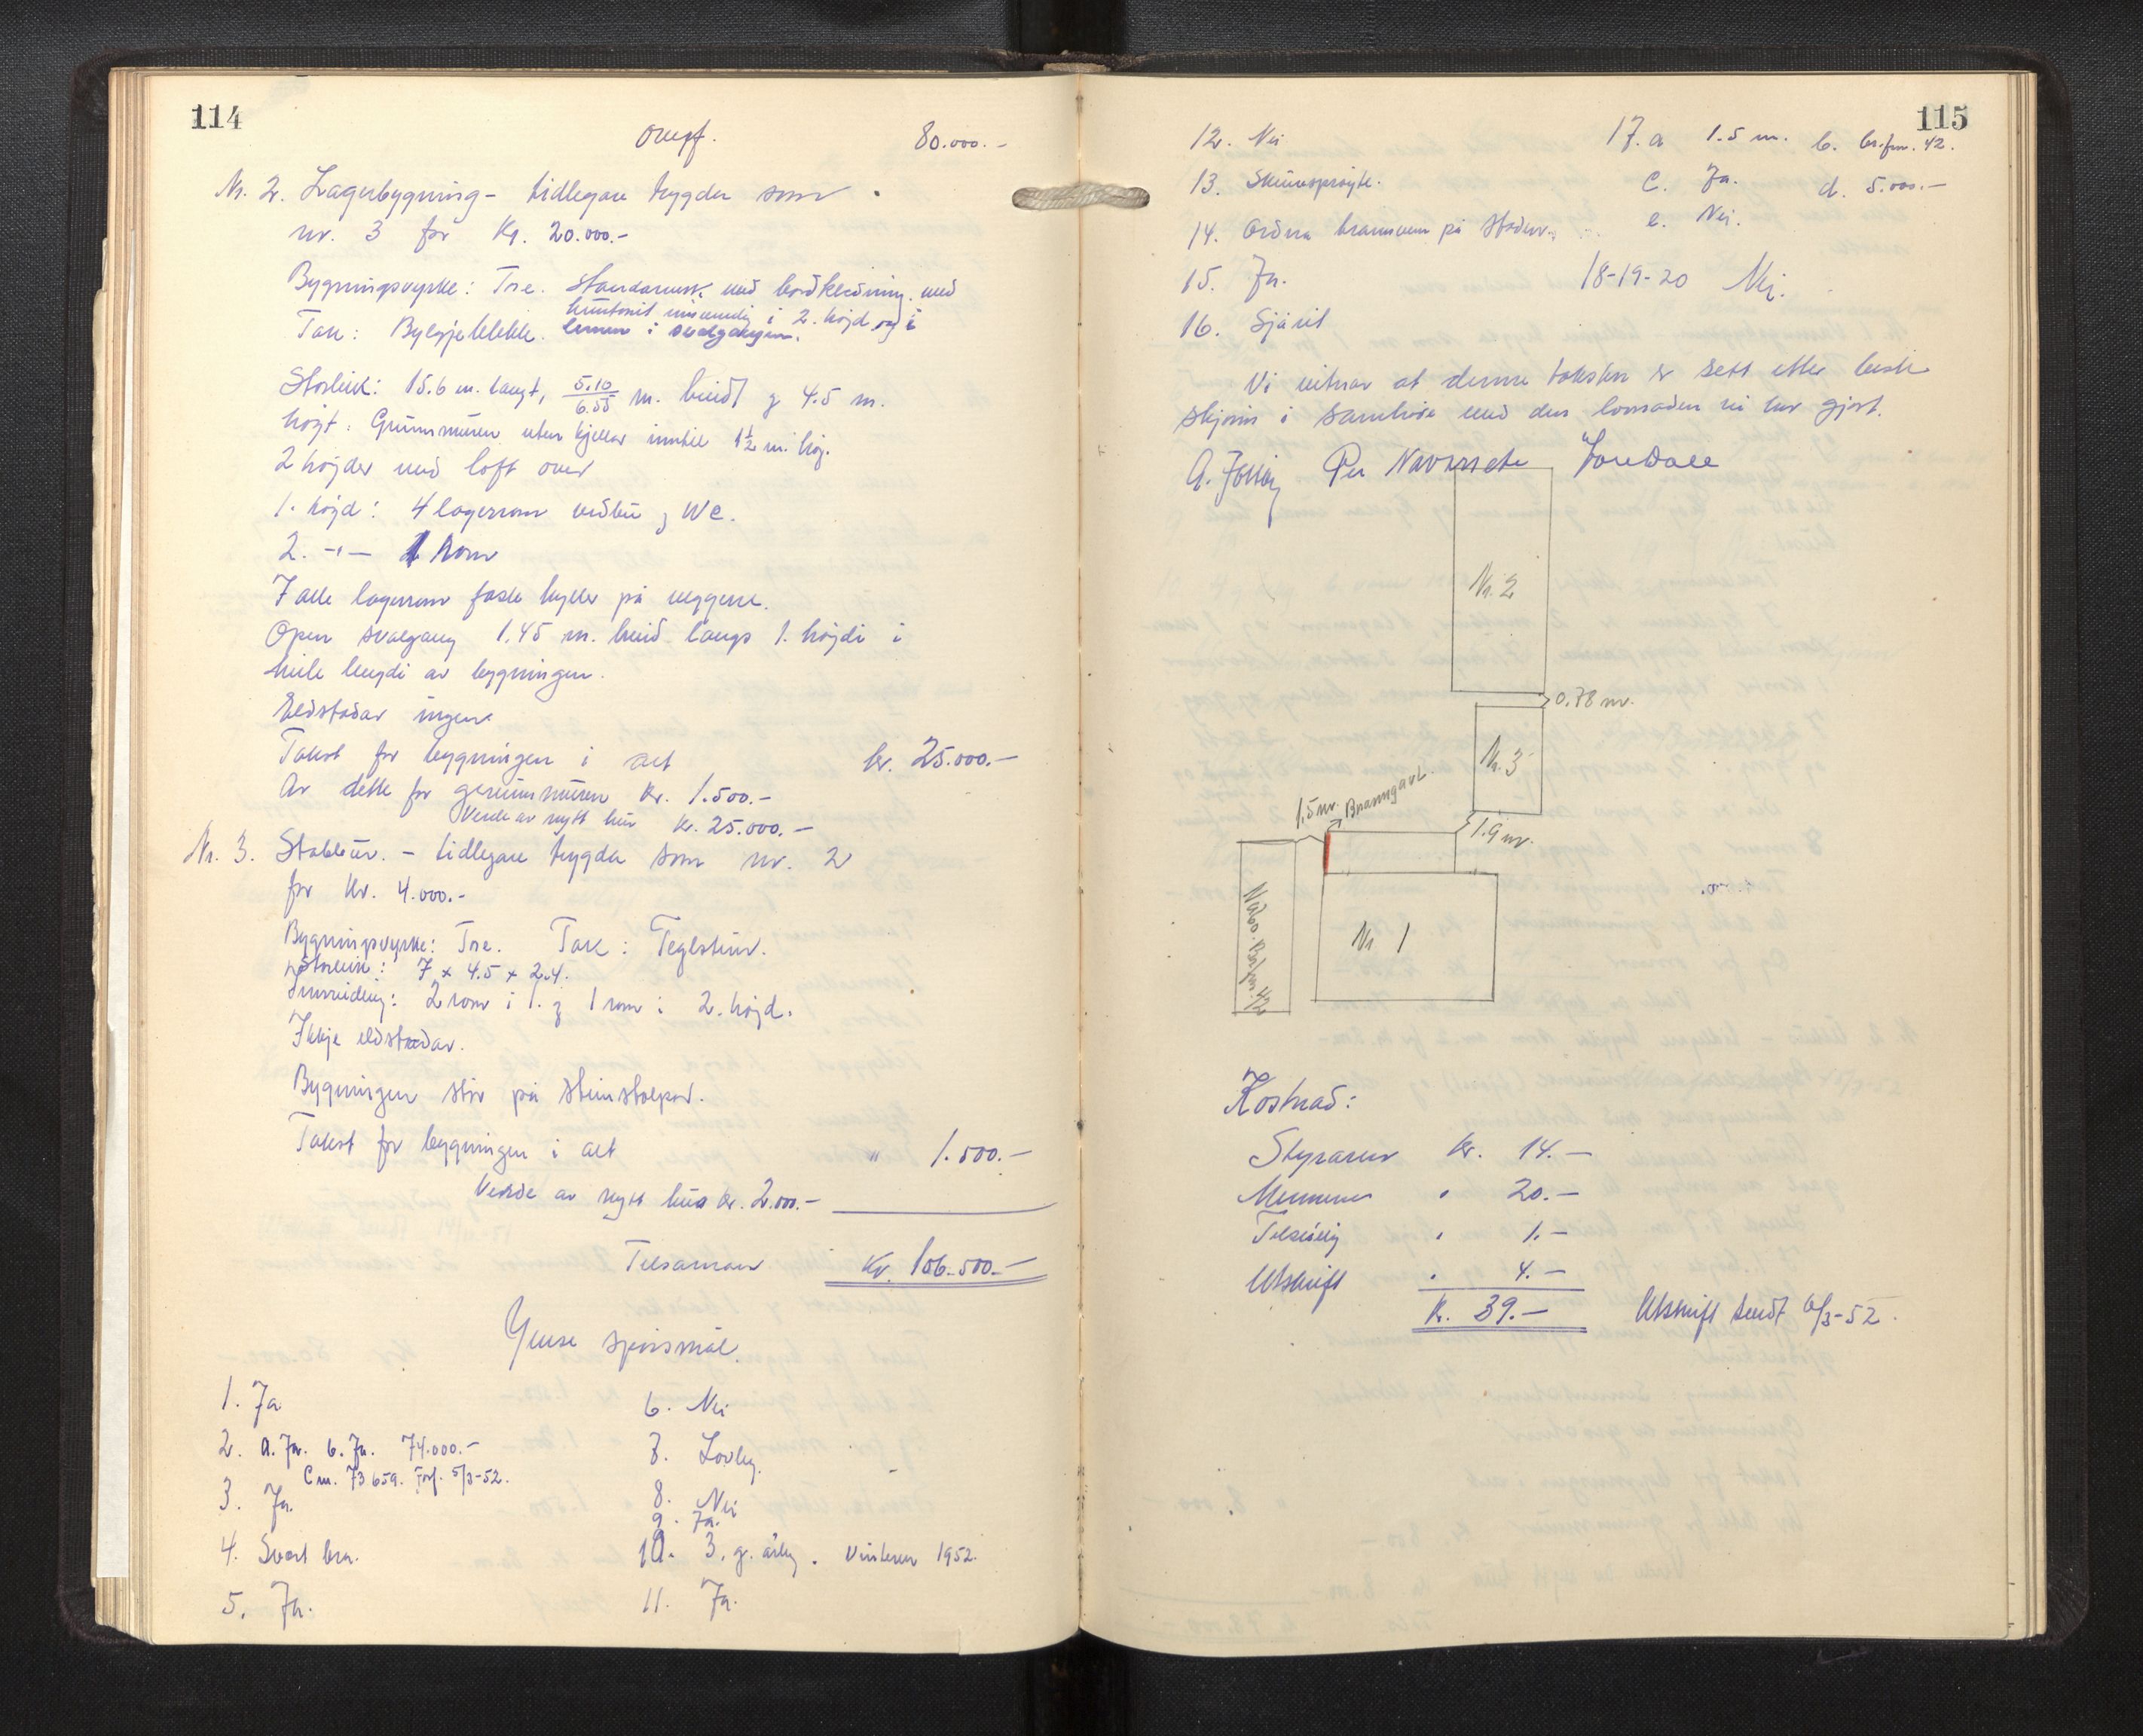 114
Overf. 80.000.-
Nr. 2. Lagerbygning - tidlegare trygda som
nr. 3 for Kr. 20.000.-
Bygningsvyrke: Tre. med bordkledning. med
huntonit innvendig i 2. højd og i
Tak: Bylgjeblekk. i svalgangen.
Storleik: 15.6 m. langt, 5.10/6.55 m. breidt og 4.5 m.
högt. Grunnmuren uten kjellar inntil 1½ m. høg.
2 højder med loft over
1. højd: 4 lagerrom vedbu og WC.
2. -"- 1 rom
I alle lagerrom faste hyller på veggene.
Open svalgang 1.45 m. breid langs 1. højdi i
heile lengdi av bygningen.
Eldstadar ingen.
Takst for bygningen i alt kr. 25.000.-
Av dette for grunnmuren kr. 1.500.-
Verde av nytt hus kr. 25.000.-
Nr. 3. Stabbur. - tidlegare trygda som nr. 2
for kr. 4.000.-
Bygningsvyrke: Tre. Tak: Teglstein.
Storleik: 7 x 4.5 x 2.4.
Innreidnig: 2 rom i 1. og 1 rom i 2. højd.
Ikkje eldstadar.
Bygningen står på steinstolpar.
Takst for bygningen i alt " 1.500.-
Verde av nytt hus kr. 2.000.-
Tilsaman Kr. 106.500.-
Ymse spørsmål.
1. Ja 6. Nei
2. a. Ja. b. Ja. 74.000.- 7. Lovleg.
C m. 73659. Forf. 5/3-52.
3. Ja. 8. Nei
9. Ja.
4. Svært bra. 10. 3. g. årleg. Vinteren 1952.
5. Ja. 11. Ja.
115
12. Nei 17. a 1.5 m. b. br.fnr. 42.
13. Skumsprøyte. c. Ja. d. 5.000.-
14. Ordna brannvern på staden. e. Nei.
15. Ja. 18-19-20 Nei.
16. Sjå rit
Vi vitnar at denne taksten er sett etter beste
skjønn i samhøve med den han gjort.
Per Navarsete
Nr. 2
0.78 m.
Nr. 3
1,5 m. Branngavl.
1.9 m.
Nabo. Br.fnr. 42
Nr 1
Kostnad:
Styraren kr. 14.-
Mennene " 20.-
" 1.-
Utskrift " 4.-
Kr. 39.- Utskrift sendt 6/3-52.